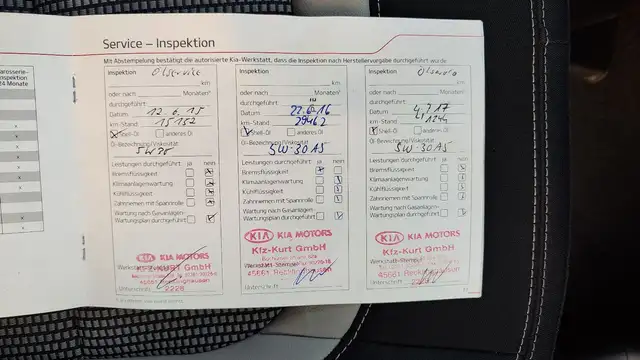 arosserie-
nspektion
4 Monate
Service – Inspektion
Mit Abstempelung bestätigt die autorisierte Kia-Werkstatt, dass die Inspektion nach Herstellervorgabe durchgeführt wurde
Inspektion Ölservice
km
oder nach Monaten¹
durchgeführt:
Datum 12.6.15
km-Stand 15152
x Shell-Öl anderes Öl
Öl-Bezeichnung/Viskosität
Leistungen durchgeführt: ja nein
Bremsflüssigkeit x
Klimaanlagenwartung x
Kühlflüssigkeit x
Zahnriemen mit Spannrolle x
Wartung nach Gasanlagen-
Wartungsplan durchgeführt
KIA KIA MOTORS
KFZ-KURT GmbH
Werkstatt-Stempel
Unterschrift 2228
Inspektion
km
oder nach Monaten¹
durchgeführt:
Datum
km-Stand 29462
Shell-Öl anderes Öl
Öl-Bezeichnung/Viskosität
5W-30 A5
Leistungen durchgeführt: ja nein
Bremsflüssigkeit x
Klimaanlagenwartung
Kühlflüssigkeit
Zahnriemen mit Spannrolle
Wartung nach Gasanlagen-
Wartungsplan durchgeführt
KIA KIA MOTORS
Kfz-Kurt GmbH
Werkstatt-Stempel
45661 Recklinghausen
Unterschrift
Inspektion
km
oder nach Monaten¹
durchgeführt:
Datum 4.7.17
km-Stand 41244
Shell-Öl anderes Öl
Öl-Bezeichnung/Viskosität
5W-30 A5
Leistungen durchgeführt: ja nein
Bremsflüssigkeit
Klimaanlagenwartung
Kühlflüssigkeit
Zahnriemen mit Spannrolle
Wartung nach Gasanlagen-
Wartungsplan durchgeführt
KIA KIA MOTORS
Kfz-Kurt GmbH
Werkstatt-Stempel
45661 Recklinghausen
Unterschrift